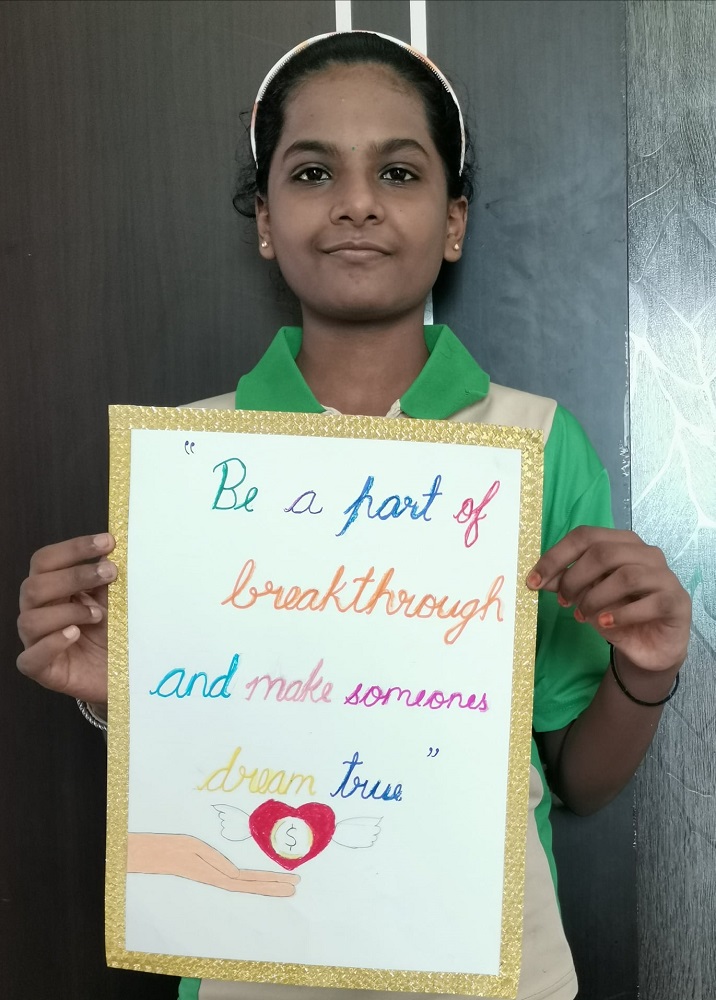 "Be a part of
breakthrough
and make someones
dream true"
$